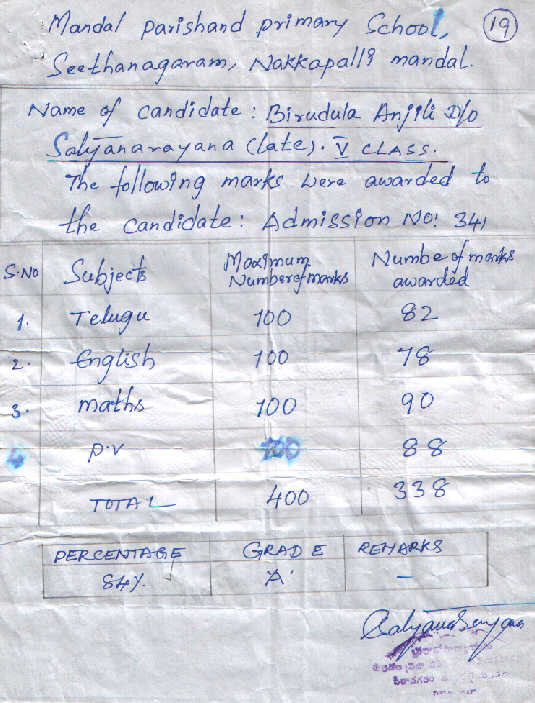 Mandal parishand primary School, 19
Seethanagaram, Nakkapalli mandal.
Name of candidate : Birudula Anjili D/o
Satyanarayana (late). V CLASS.
The following marks were awarded to
the candidate: Admission No: 341
S.No Subjects Maximum Number of marks Number of marks awarded
1. Telugu 100 82
2. English 100 78
3. maths 100 90
4 P.V 100 88
TOTAL 400 338
PERCENTAGE GRADE REMARKS
84%. A —